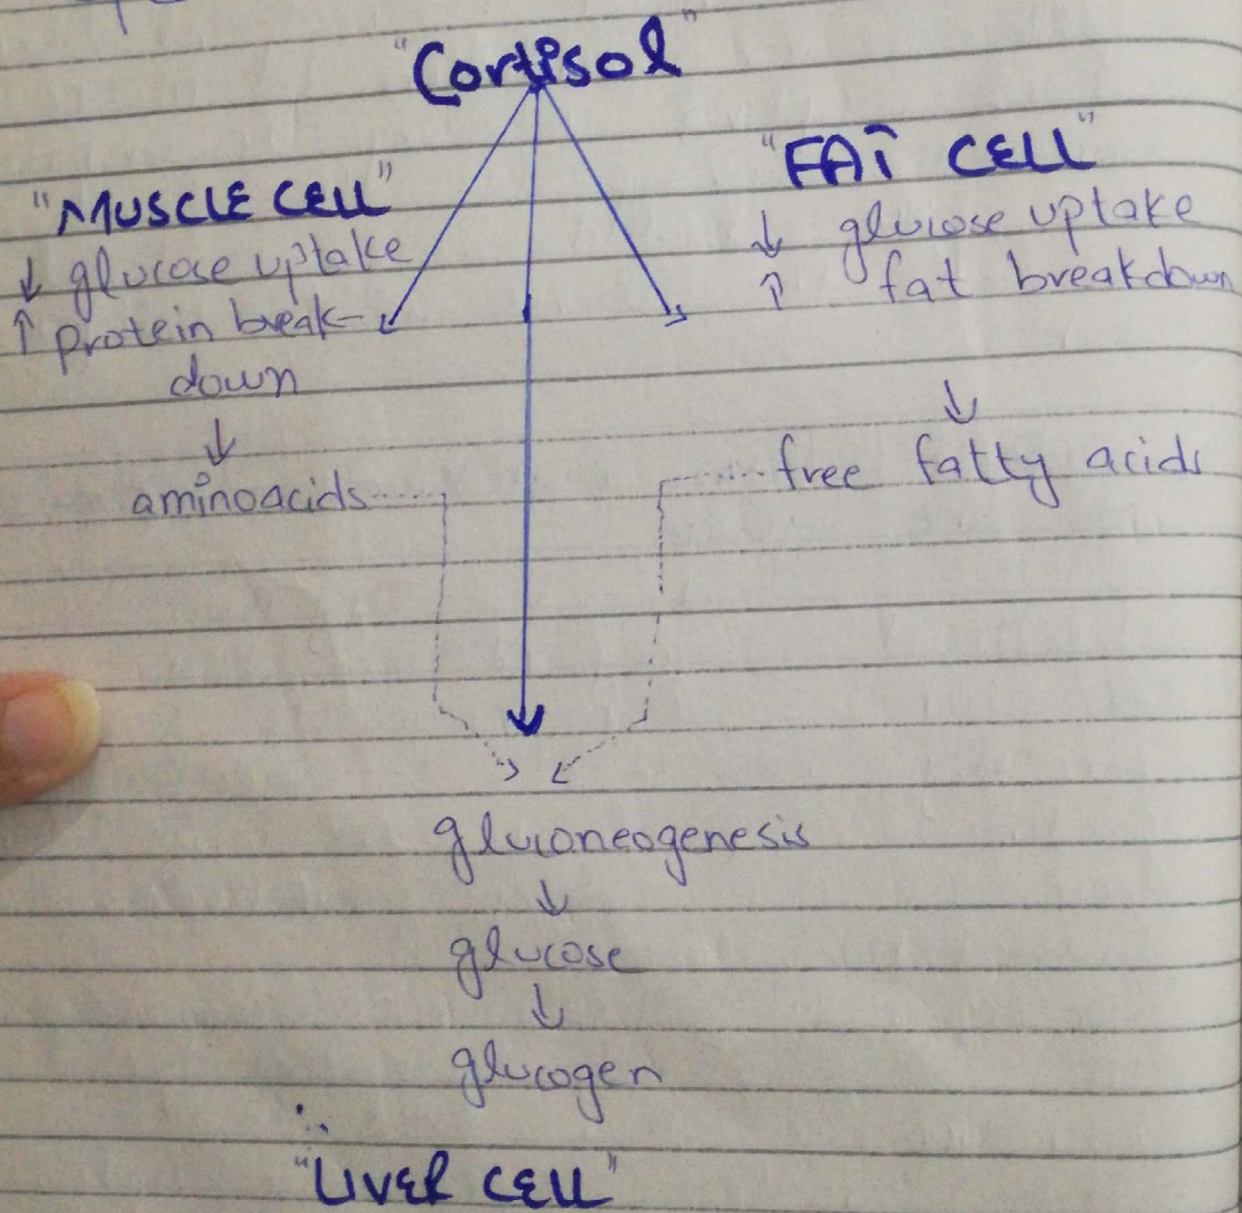 "Cortisol"
"MUSCLE CELL"
↓ glucose uptake
↑ protein break-
down
↓
aminoacids
"FAT CELL"
↓ glucose uptake
↑ fat breakdown
↓
free fatty acids
gluconeogenesis
↓
glucose
↓
glucogen
"LIVER CELL"